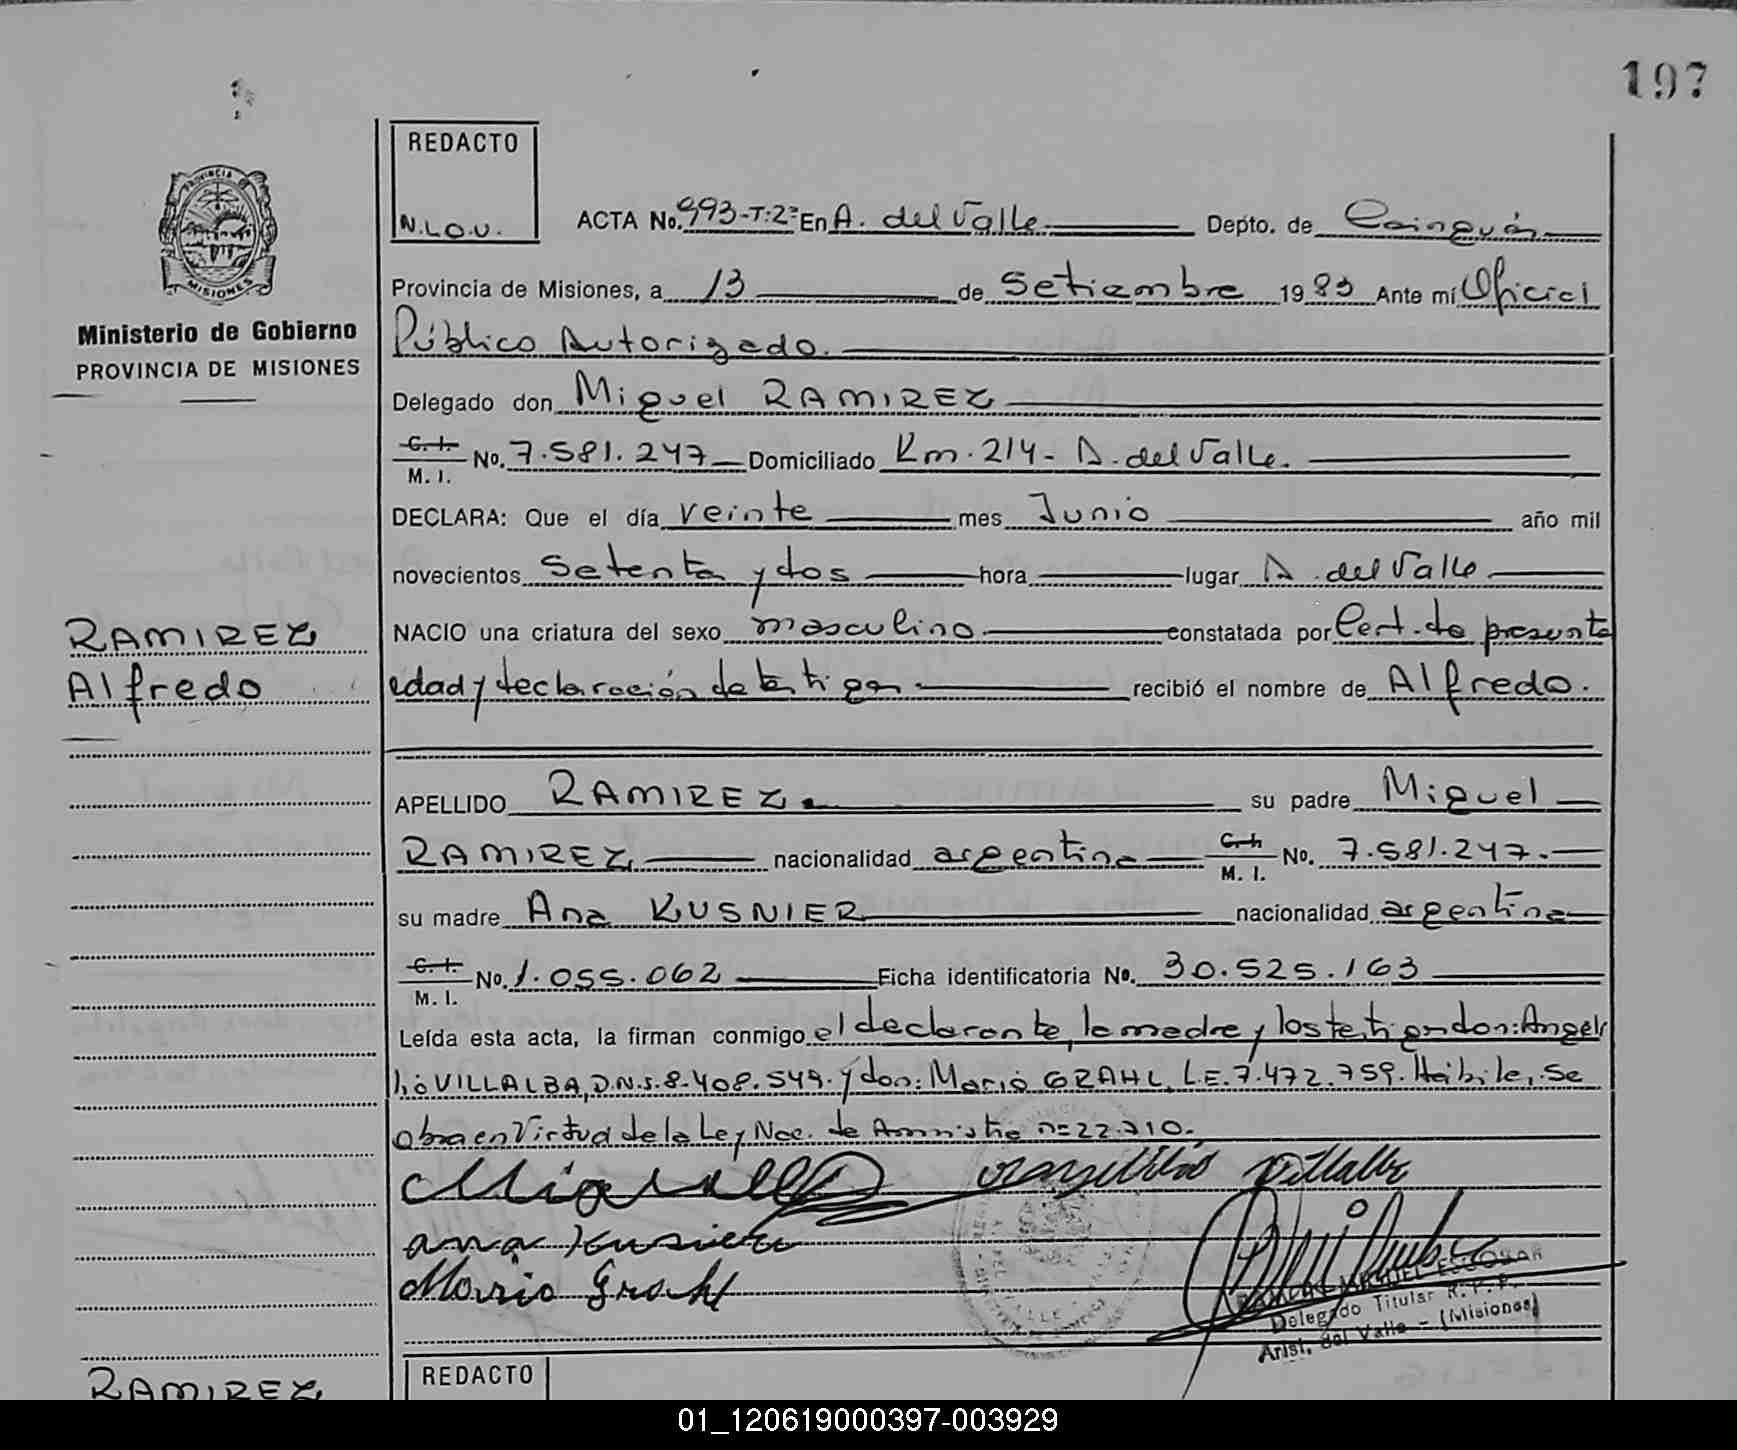 197
REDACTO
N.L.O.V.
PROVINCIA
MISIONES
Ministerio de Gobierno
PROVINCIA DE MISIONES
ACTA No. 993-T:2º En A. del Valle Depto. de Cainguás
Provincia de Misiones, a 13 de Setiembre 1983 Ante mí Oficial
Público Autorizado.
Delegado don Miguel RAMIREZ
C. I. M. I. No. 7.581.247 Domiciliado Km. 214- A. del Valle.
DECLARA: Que el día veinte mes Junio año mil
novecientos setenta y dos hora lugar A. del Valle
RAMIREZ
Alfredo
NACIO una criatura del sexo masculino constatada por Cert. de presunta
edad y declaración de testigos recibió el nombre de Alfredo.
APELLIDO RAMIREZ. su padre Miguel
RAMIREZ nacionalidad argentina C. I. M. I. No. 7.581.247.-
su madre Ana KUSNIER nacionalidad argentina
C. I. M. I. No. 1.055.062 Ficha identificatoria No. 30.525.163
Leída esta acta, la firman conmigo el declarante, la madre y los testigos don: Angeli
lió VILLALBA, D.N.I. 8.408.549. y don: Mario GRAHL, L.E. 7.472.759. Hábiles, se
obra en Virtud de la Ley Nac. de Amnistia nº 22.710.
ana Kusnier
Mario Grahl
MIGUEL ESCOBAR
Delegado Titular R.P.P.
Arist. del Valle - (Misiones)
REDACTO
RAMIREZ
01_120619000397-003929